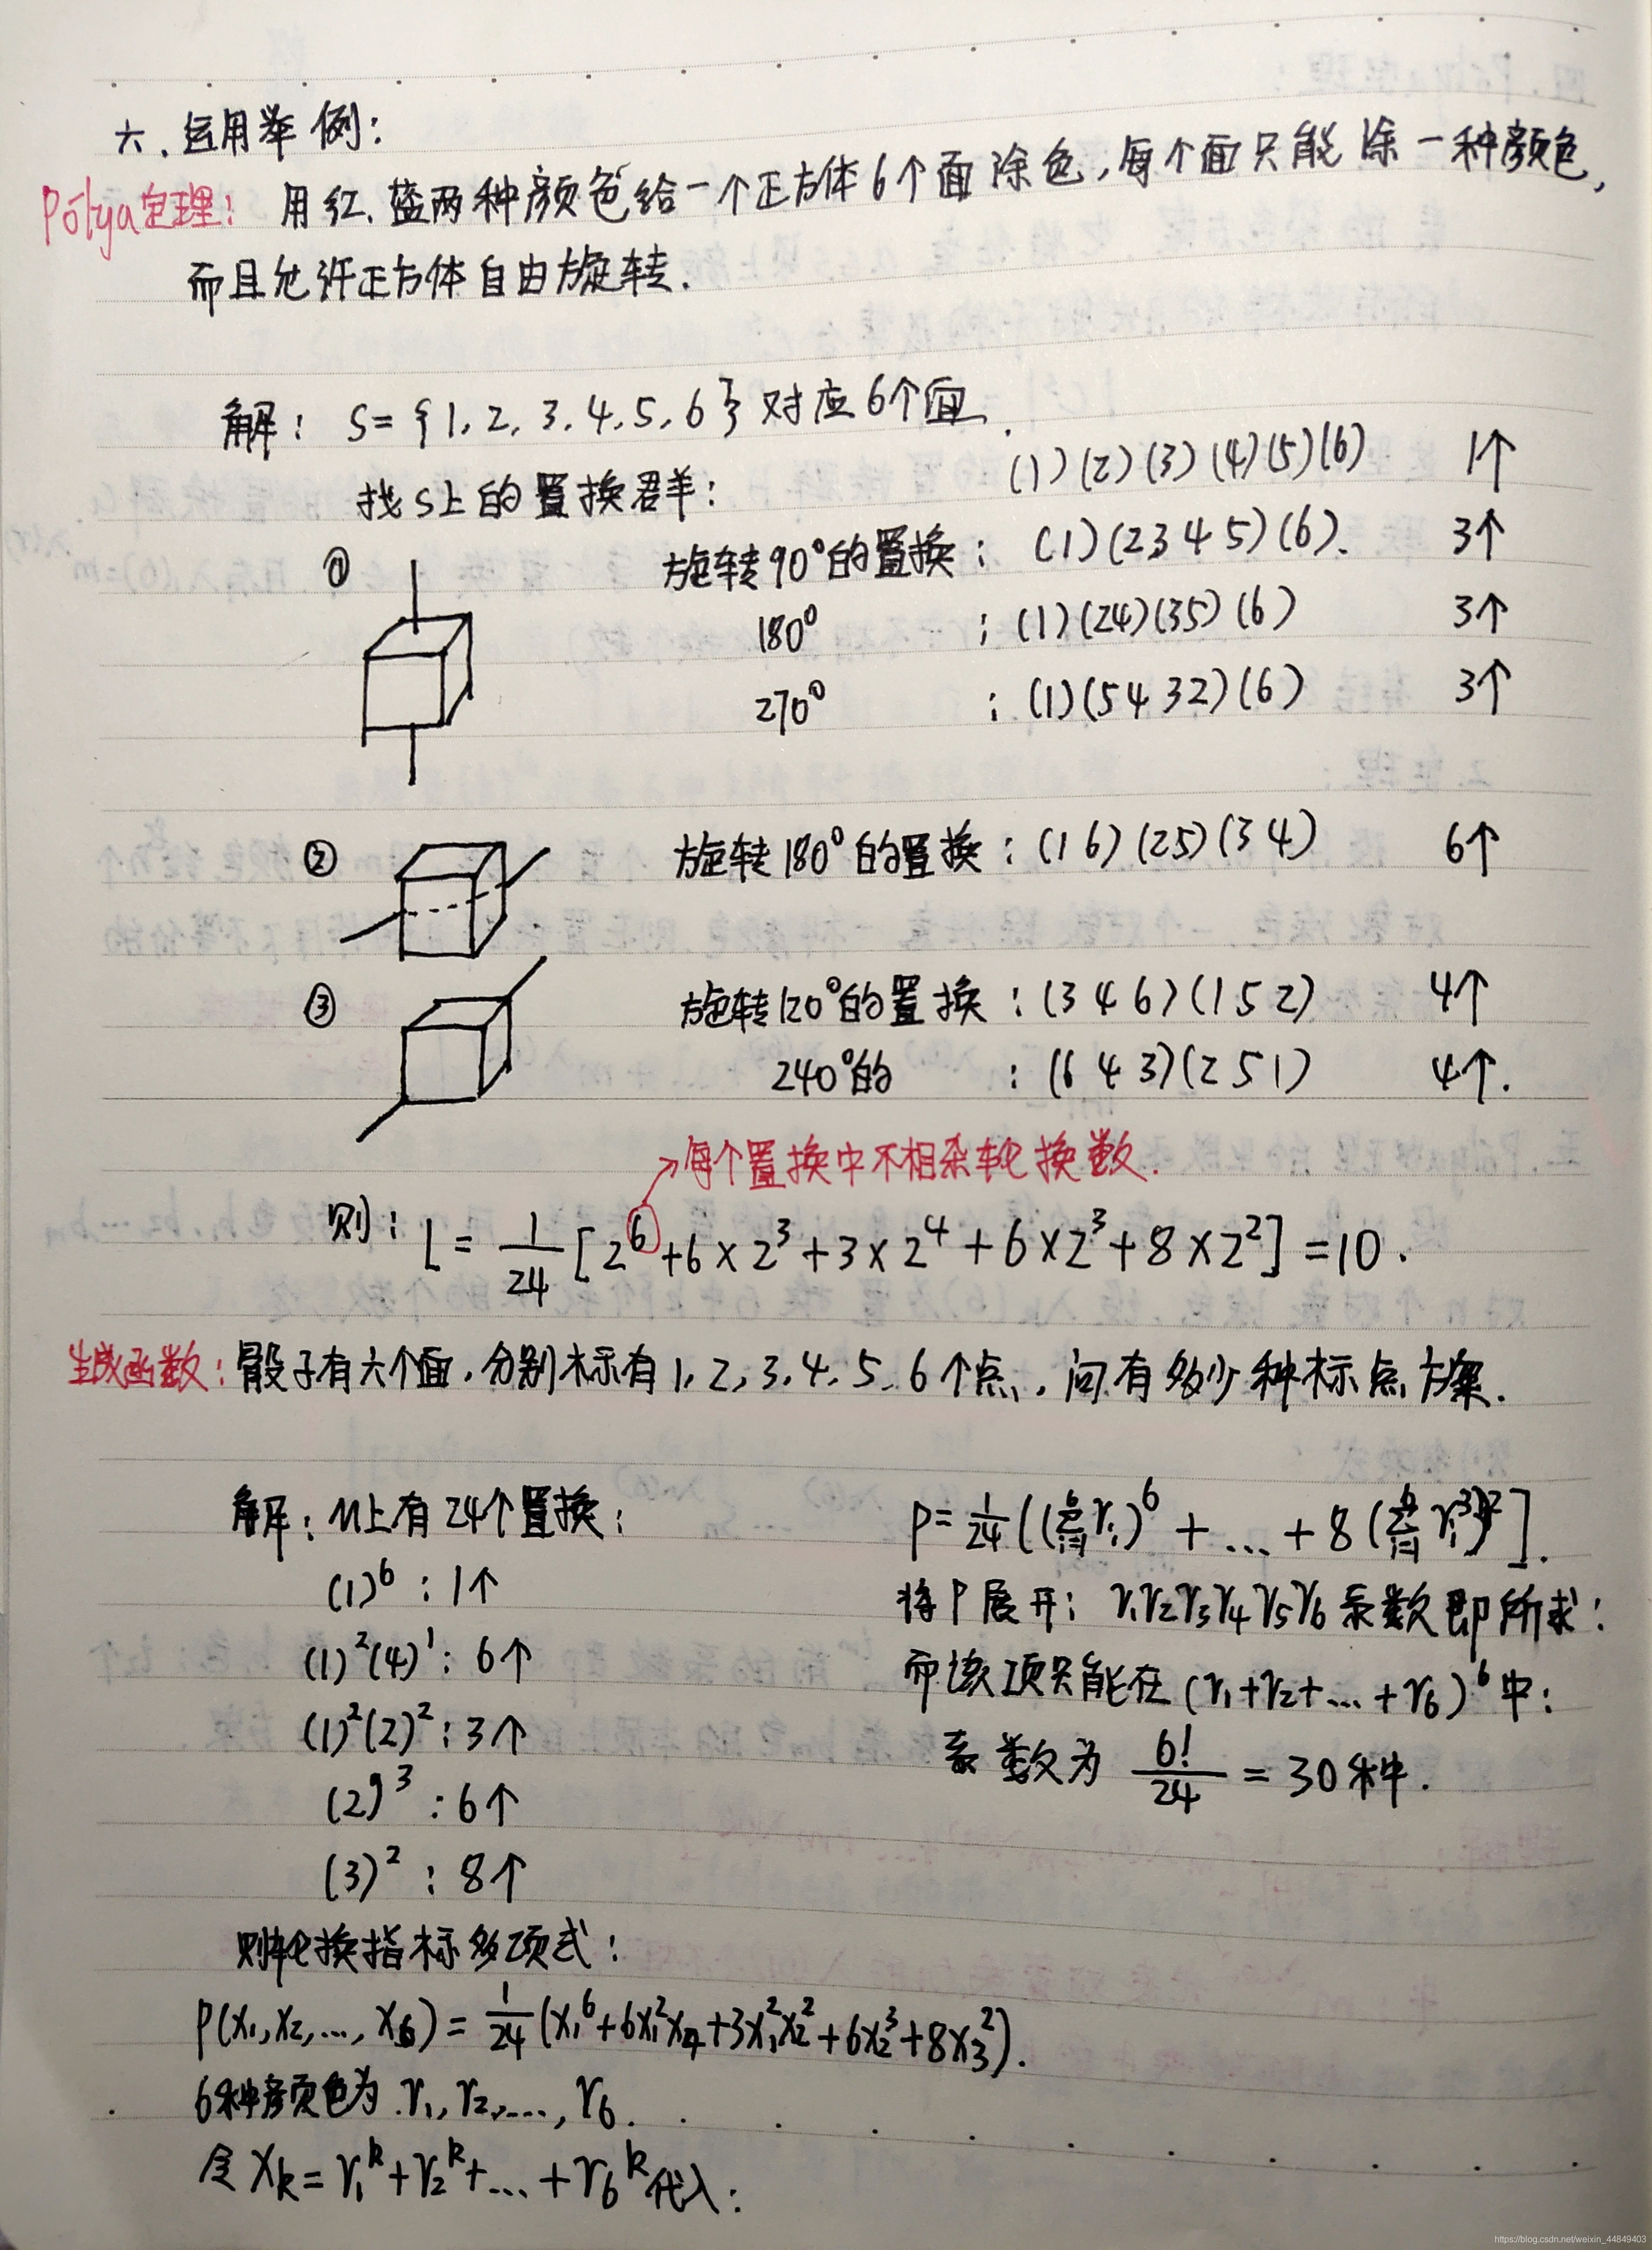 六、运用举例:
Pólya定理: 用红、蓝两种颜色给一个正方体6个面涂色,每个面只能涂一种颜色,
而且允许正方体自由旋转.
解: S={1,2,3,4,5,6}对应6个面.
找S上的置换群:
(1)(2)(3)(4)(5)(6) 1个
① 旋转90°的置换: (1)(2345)(6). 3个
180° : (1)(24)(35)(6) 3个
270° : (1)(5432)(6) 3个
② 旋转180°的置换: (16)(25)(34) 6个
③ 旋转120°的置换: (346)(152) 4个
240°的 : (643)(251) 4个.
→每个置换中不相杂轮换数.
则: L = 1/24 [2^6+6×2^3+3×2^4+6×2^3+8×2^2] =10.
生成函数: 骰子有六个面,分别标有1,2,3,4,5,6个点,问有多少种标点方案.
解: M上有24个置换:
(1)^6 : 1个
(1)^2(4)^1 : 6个
(1)^2(2)^2 : 3个
(2)^3 : 6个
(3)^2 : 8个
则轮换指标多项式:
P(x1,x2,...,x6) = 1/24 (x1^6+6x1^2x4+3x1^2x2^2+6x2^3+8x3^2).
6种颜色为 r1,r2,...,r6.
令 xk=r1^k+r2^k+...+r6^k代入:
P= 1/24 [(∑_{i=1}^6 ri)^6 + ... + 8(∑_{i=1}^6 ri^3)^2].
将P展开: r1r2r3r4r5r6系数即所求:
而该项只能在(r1+r2+...+r6)^6中:
系数为 6!/24 = 30种.
https://blog.csdn.net/weixin_44849403